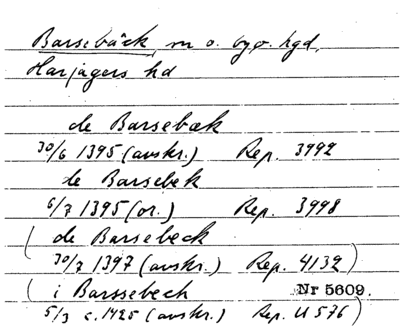 Barsebäck, m o. by o. hgd,
Harjagers hd
de Barsebæk
30/6 1395 (avskr.) Rep. 3992
de Barsebek
6/7 1395 (or.) Rep. 3998
( de Barsebeck
30/7 1397 (avskr.) Rep. 4132)
( i Barssebech Nr 5609.
5/3 c. 1425 (avskr.) Rep. U 576)